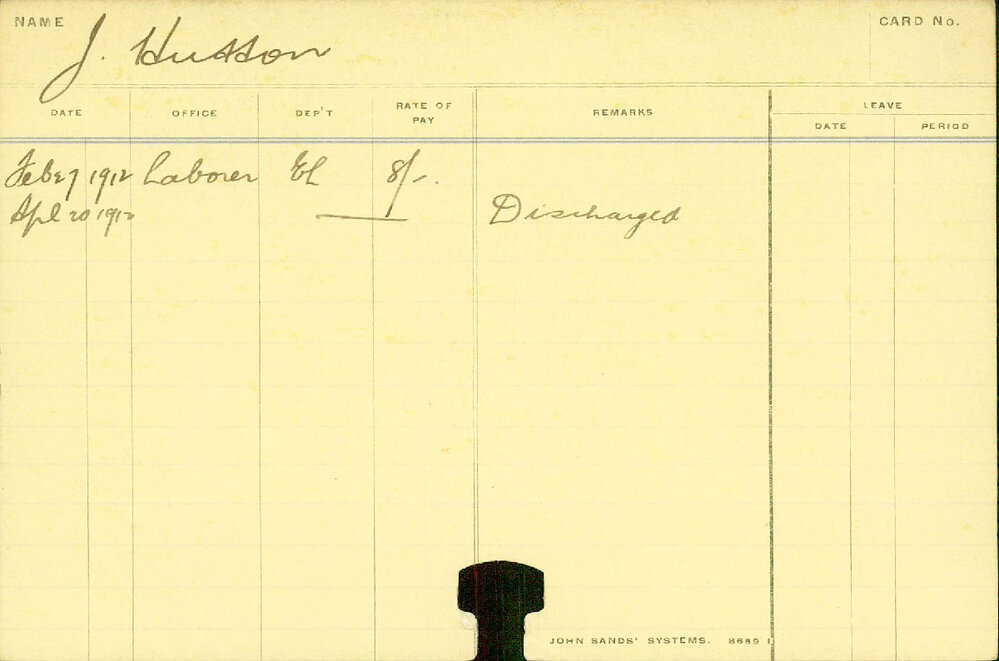 NAME J. Hutton CARD No.
DATE OFFICE DEP'T RATE OF PAY REMARKS LEAVE
DATE PERIOD
Feb 27 1912 Laborer El 8/-.
Apl 20 1912 Discharged
JOHN SANDS' SYSTEMS. 8689